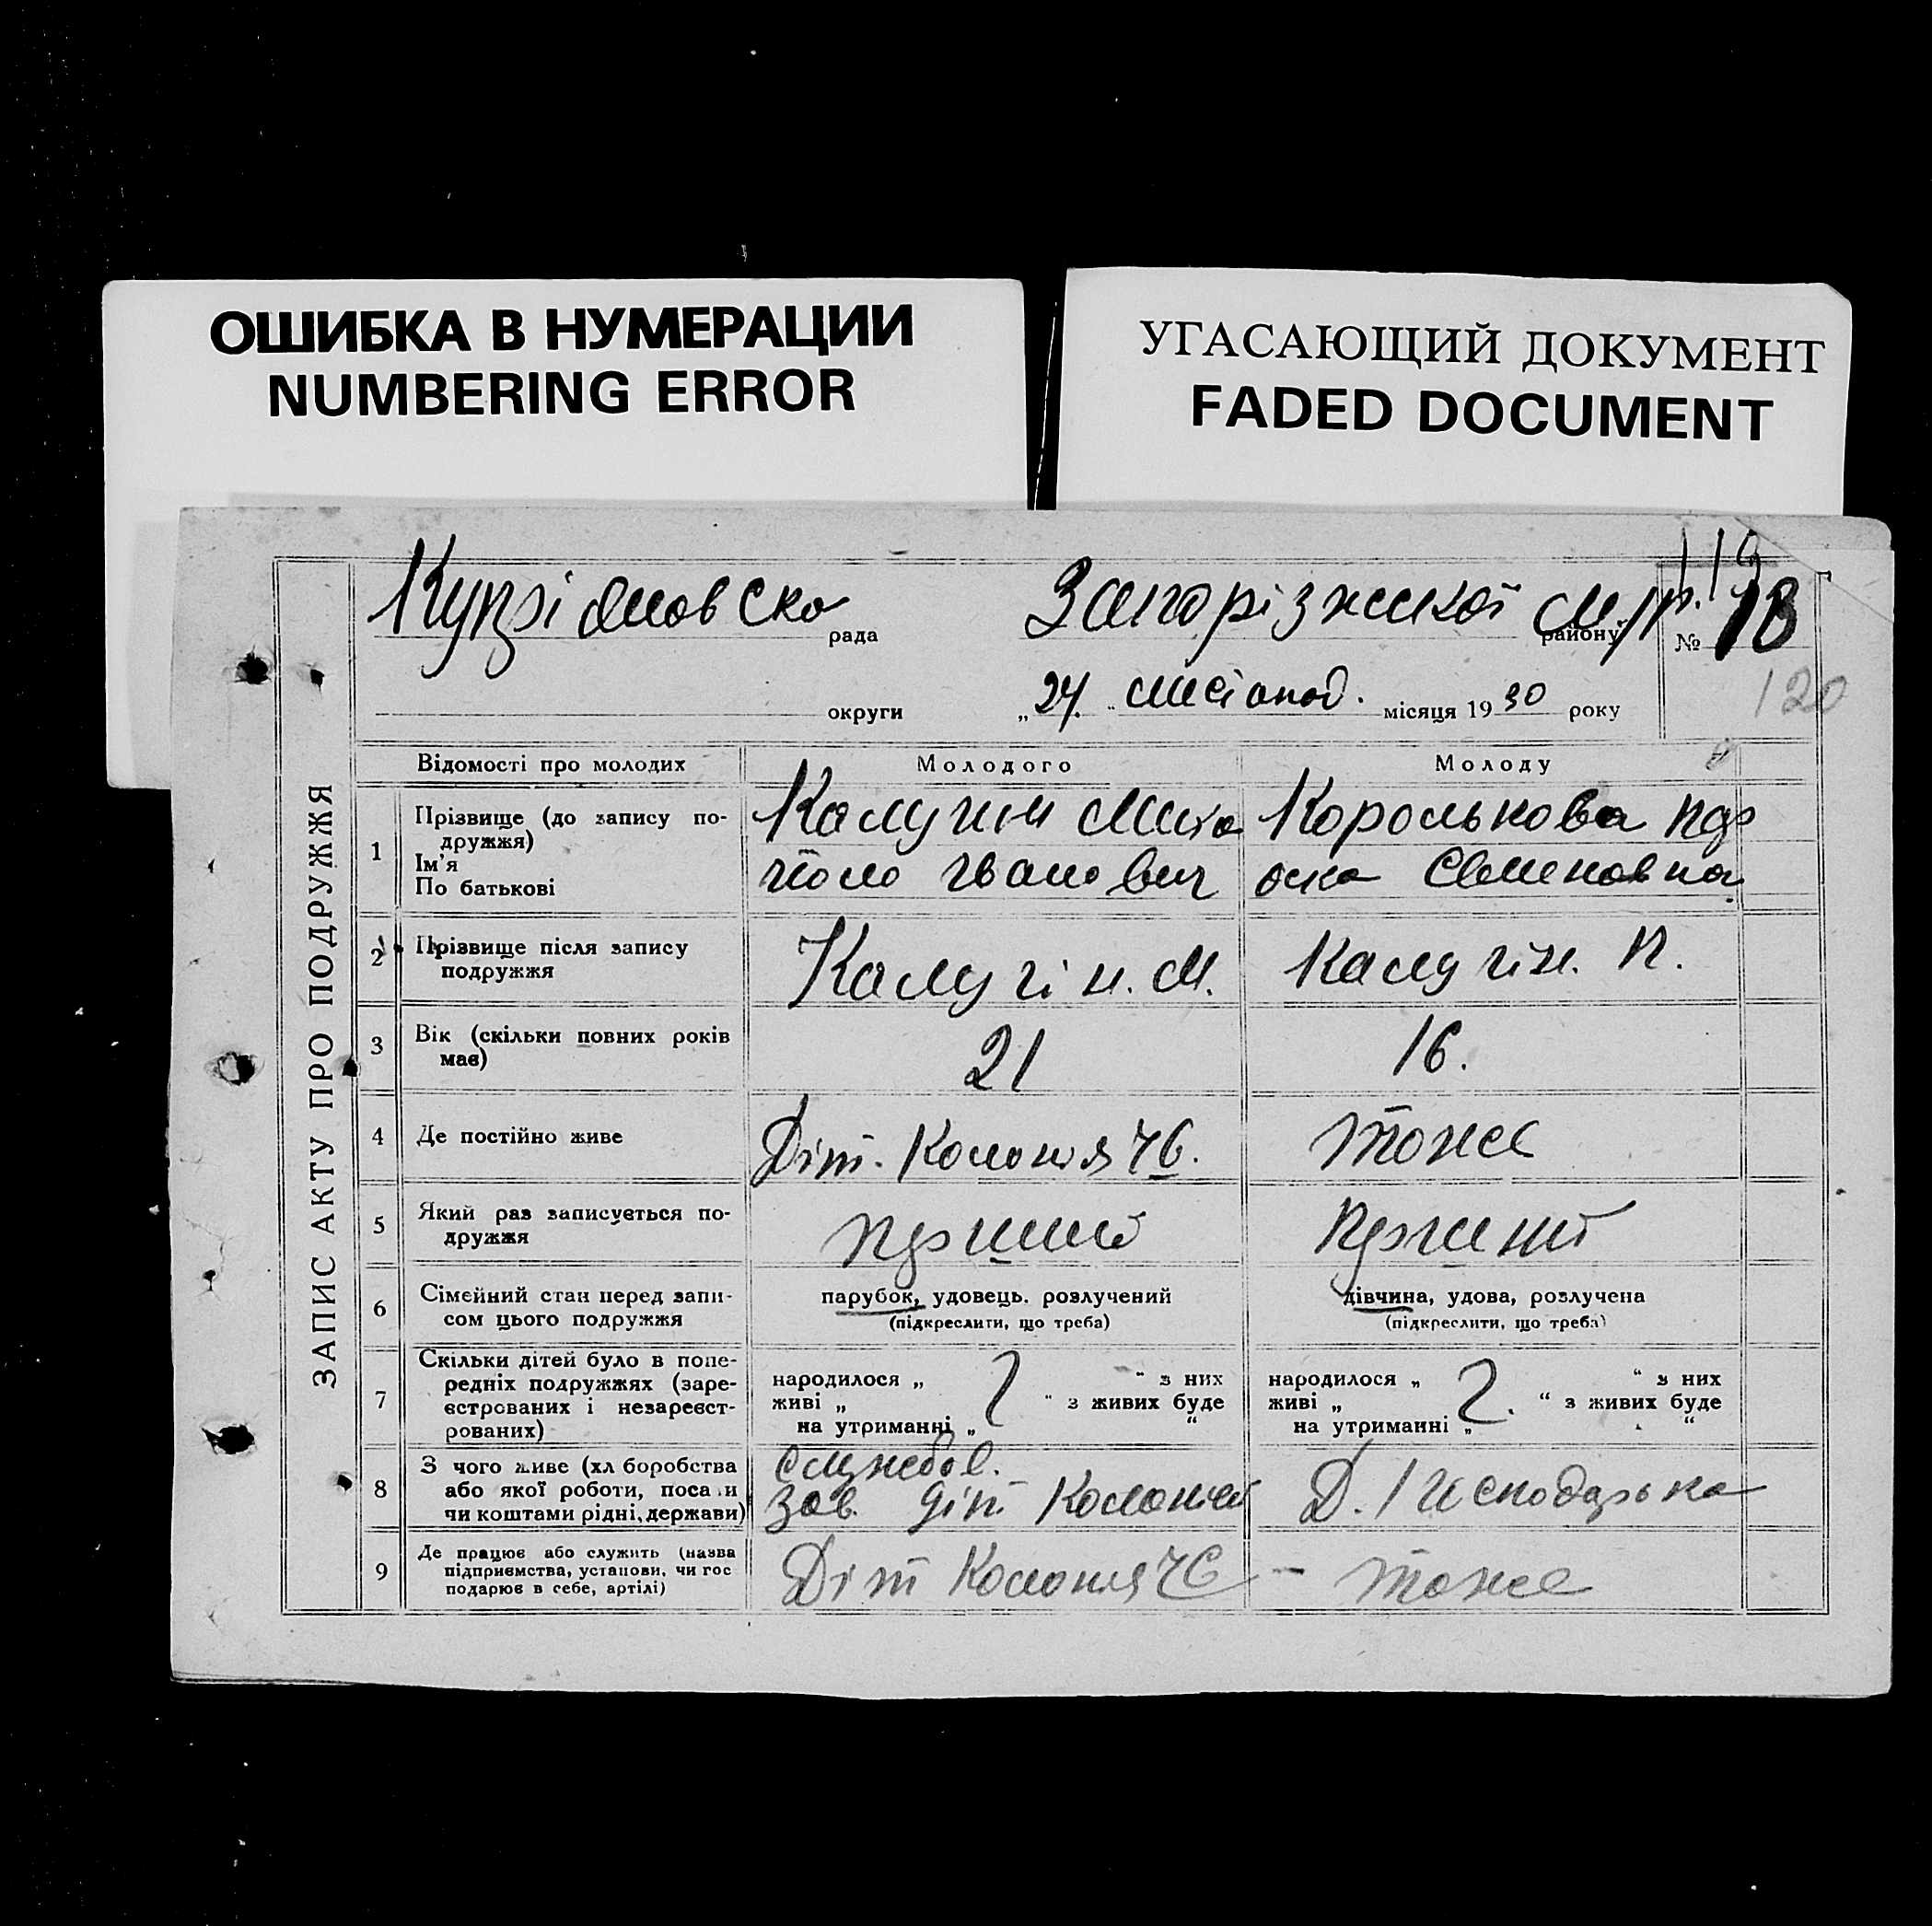 ОШИБКА В НУМЕРАЦИИ
NUMBERING ERROR
УГАСАЮЩИЙ ДОКУМЕНТ
FADED DOCUMENT
ЗАПИС АКТУ ПРО ПОДРУЖЖЯ
рада Запоріжської м/р. району № 18
120
округи „24“ листопад. місяця 1930 року
Відомості про молодих Молодого Молоду
1 Прізвище (до запису подружжя) Калугин Королькова
Ім'я
По батькові Іванович Семеновна
2 Прізвище після запису подружжя Калугін. М. Калугін. П.
3 Вік (скільки повних років має) 21 16.
4 Де постійно живе Діт. Колонія 7С. тоже
5 Який раз записується подружжя перший перший
6 Сімейний стан перед записом цього подружжя парубок, удовець, розлучений дівчина, удова, розлучена
(підкреслити, що треба) (підкреслити, що треба)
7 Скільки дітей було в попередніх подружжях (зареєстрованих і незареєстрованих) народилося „ “ з них народилося „ “ з них
живі „ “ з живих буде живі „ “ з живих буде
на утриманні „ “ на утриманні „ “
8 З чого живе (хліборобства або якої роботи, посади чи коштами рідні, держави) службов.
зав. діт Колонией Д. Господарька
9 Де працює або служить (назва підприємства, установи, чи господарює в себе, артілі) Діт Колонія 7С - тоже